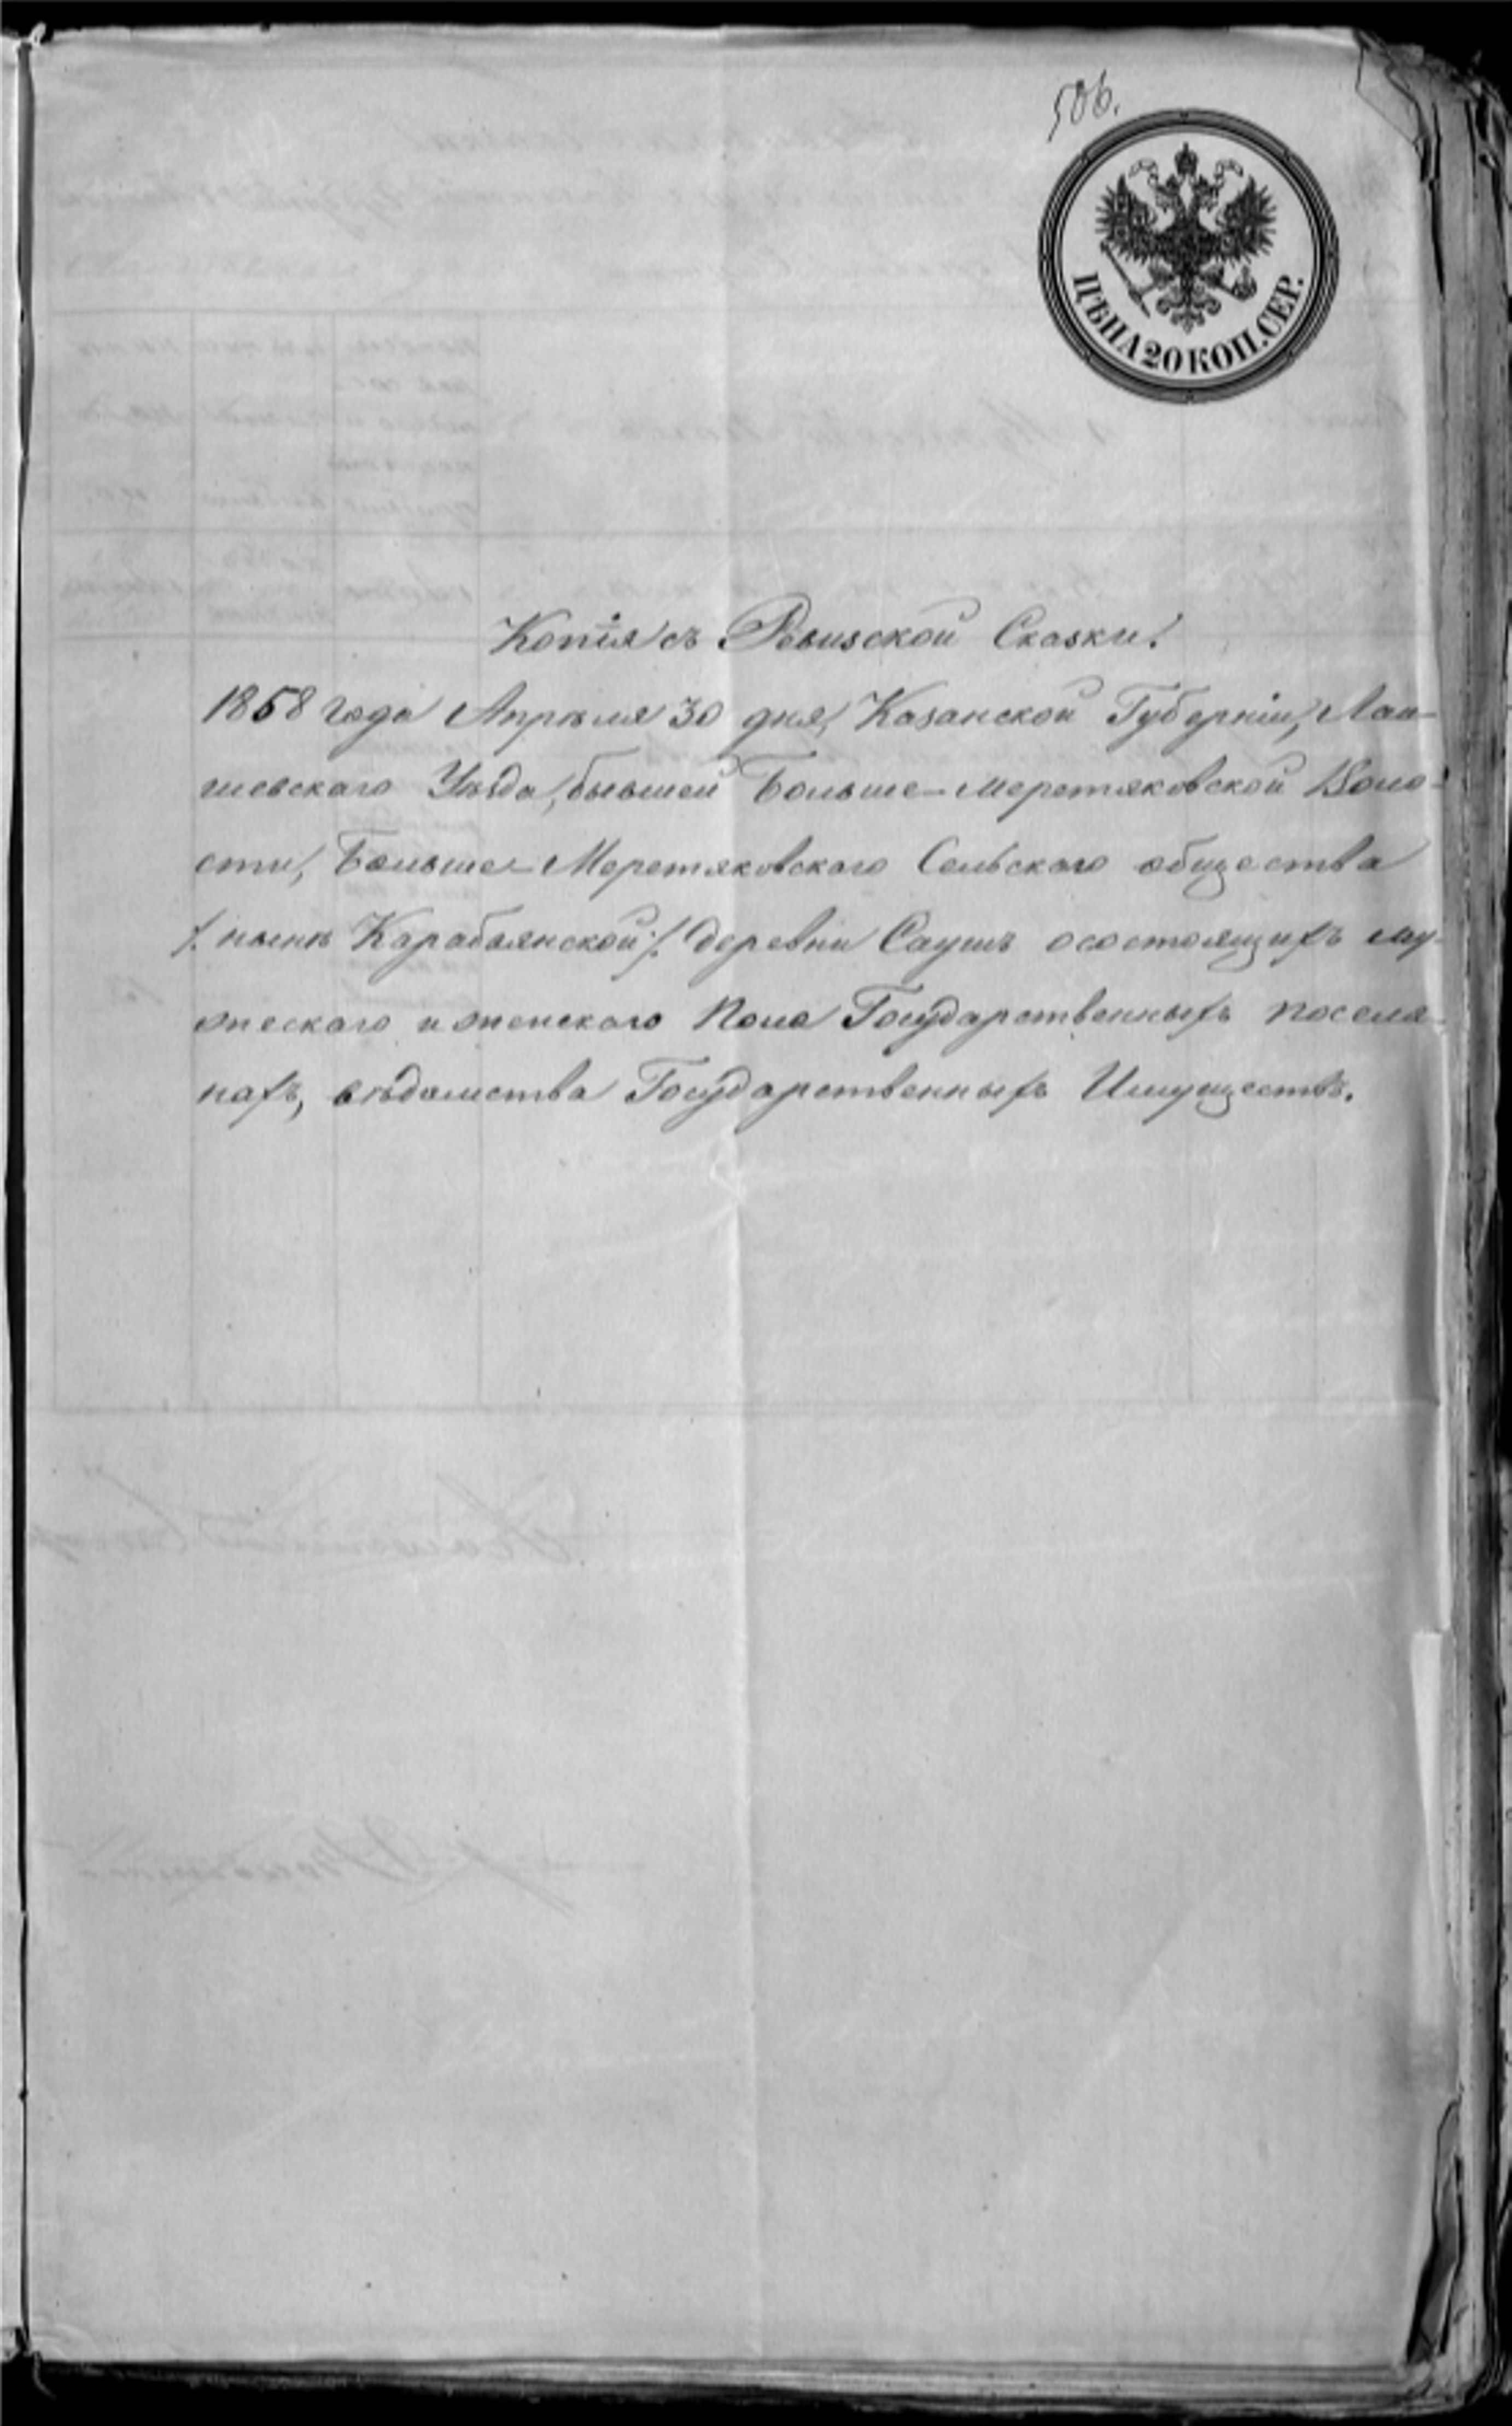 506.
ЦѢНА 20 КОП. СЕР.
Копія съ Ревизской Сказки.
1858 года Апрѣля 30 дня, Казанской Губерніи, Лаи-
шевскаго Уѣзда, бывшей Больше-Меретяковской Воло-
сти, Больше-Меретяковскаго Сельскаго общества
/: нынѣ Караbаянской :/ деревни Саушъ о состоящихъ му-
жескаго и женскаго пола Государственныхъ поселя-
нахъ, вѣдомства Государственныхъ Имуществъ.